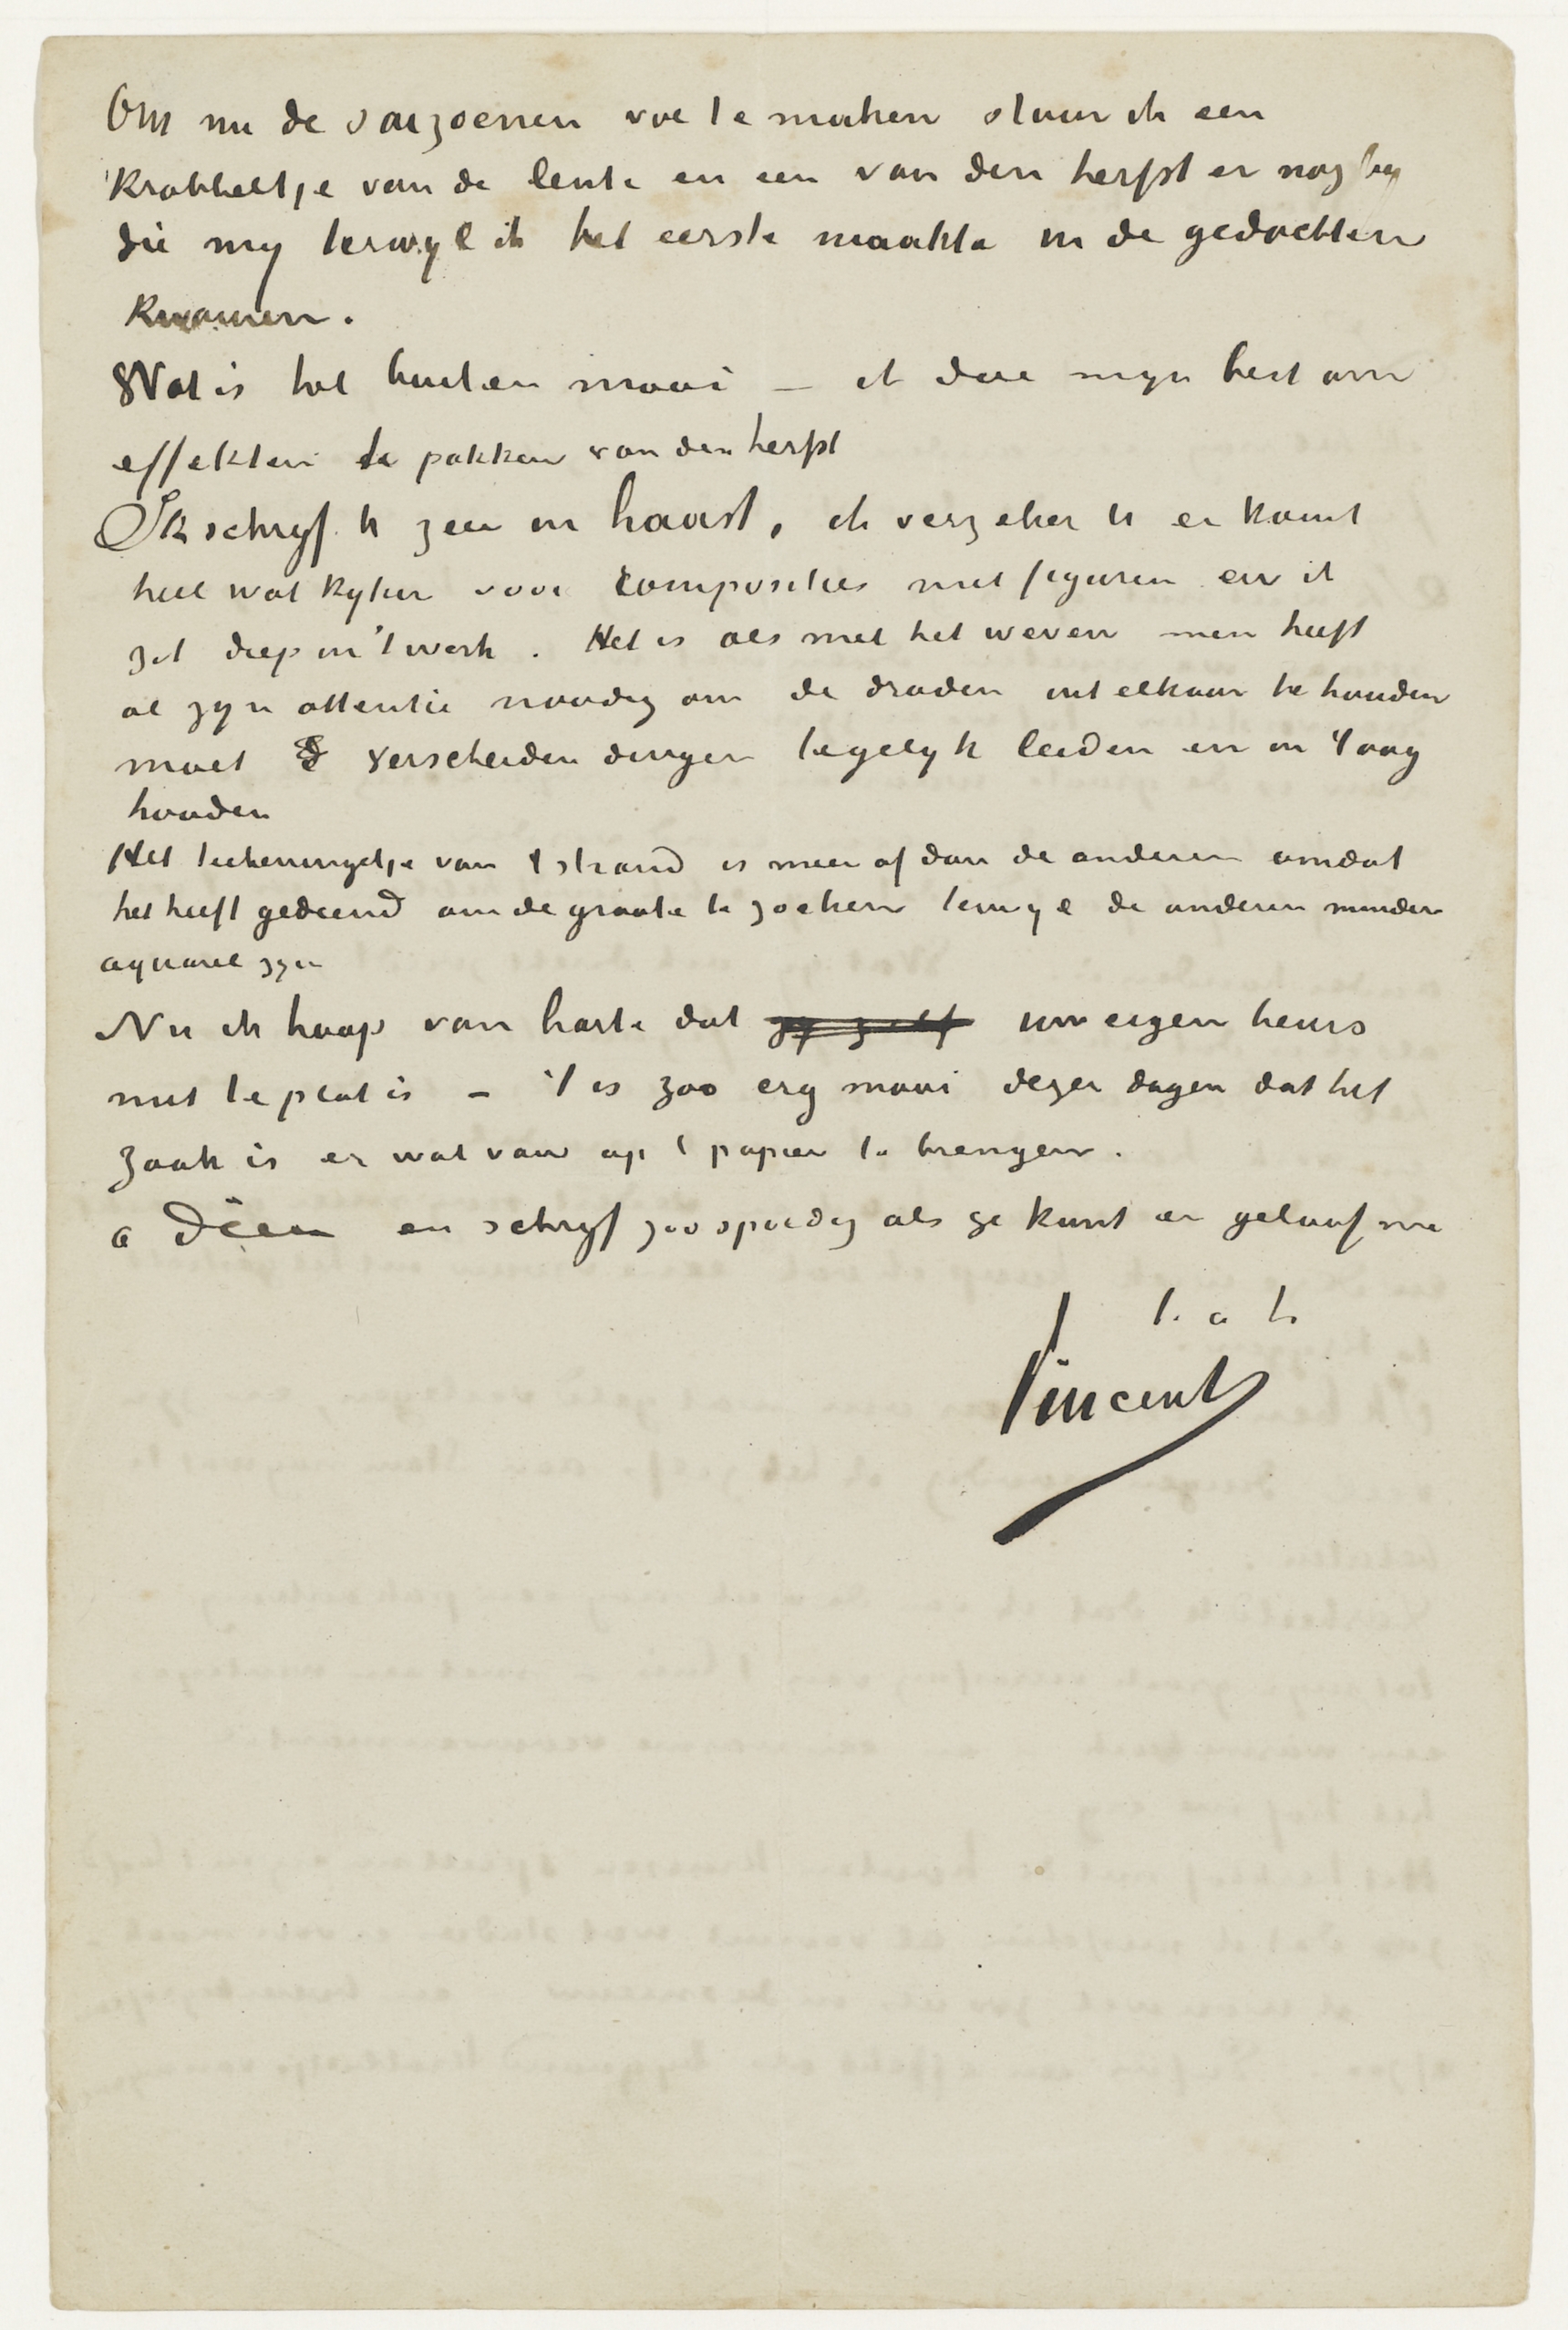 Om nu de saizoenen vol te maken stuur ik een
krabbeltje van de lente en een van den herfst er nog bij
die mij terwijl ik het eerste maakte in de gedachten
kwamen.
Wat is het buiten mooi – ik doe mijn best om
effekten te pakken van den herfst
Ik schrijf U zeer in haast, ik verzeker U er komt
heel wat kijken voor composities met figuren en ik
zit diep in 't werk. Het is als met het weven men heeft
al zijn attentie noodig om de draden uit elkaar te houden
moet verscheiden dingen tegelijk leiden en in 't oog
houden
Het teekeningetje van 't strand is meer af dan de anderen omdat
het heeft gediend om de groote te zoeken terwijl de anderen minder
aquarel zijn
Nu ik hoop van harte dat gij zelf uw eigen beurs
niet te plat is – 't is zoo erg mooi dezer dagen dat het
zaak is er wat van op 't papier te brengen.
à Dieu en schrijf zoo spoedig als ge kunt en geloof me
t. à t.
Vincent